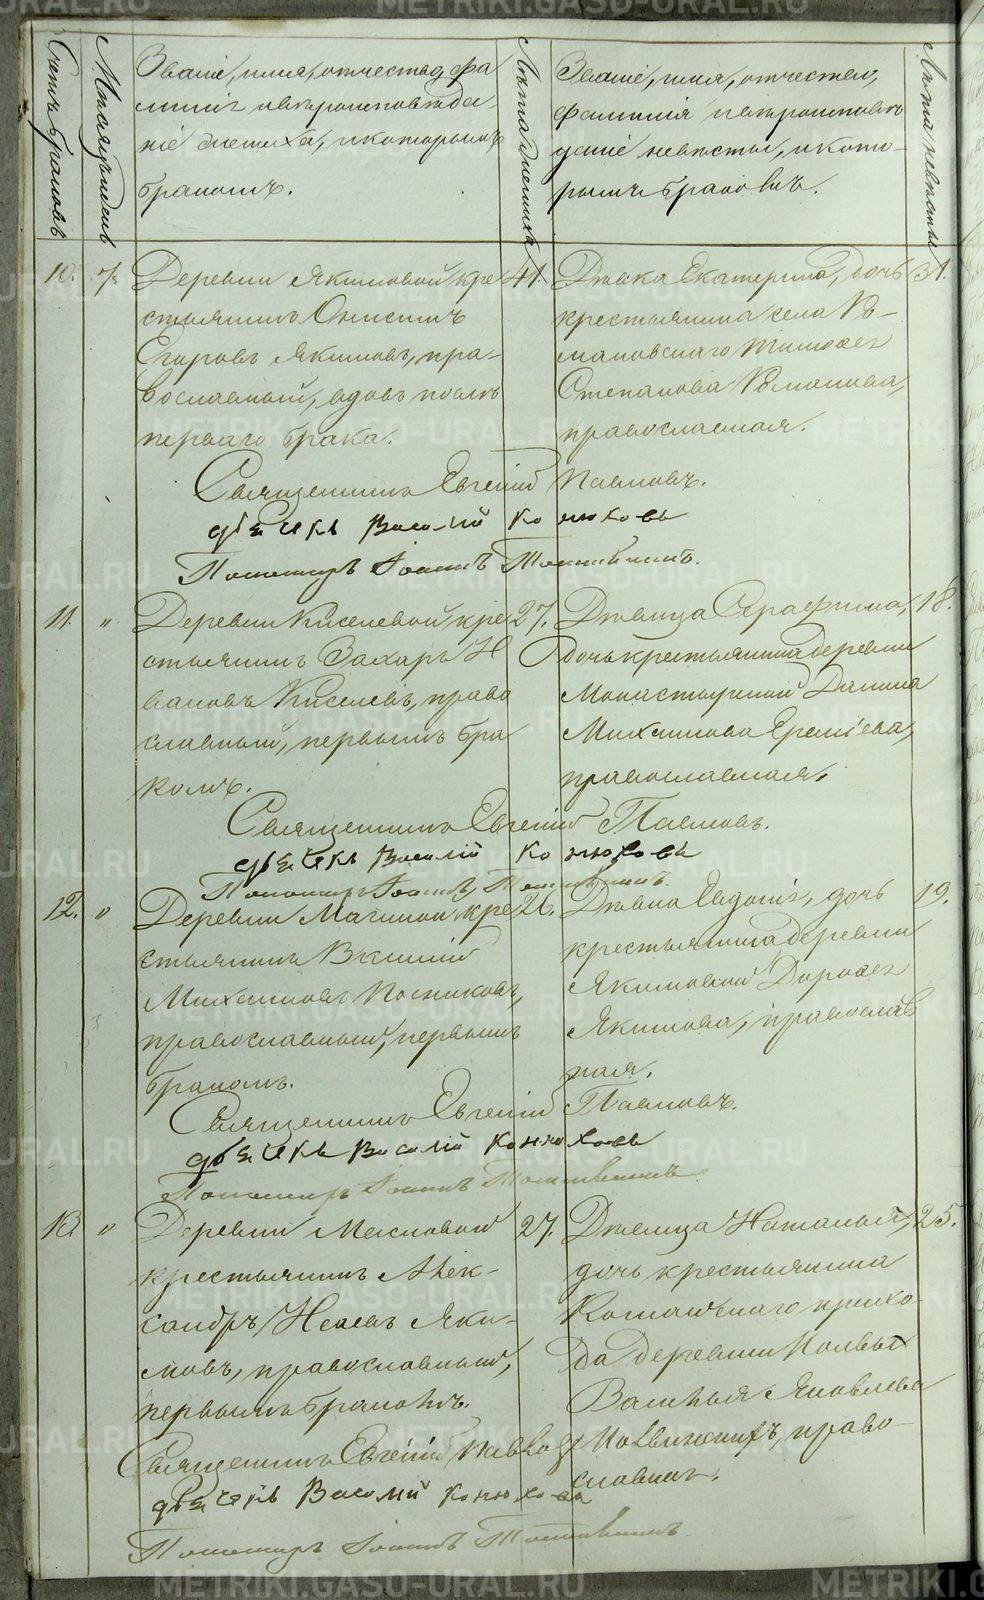 METRIKI.GASO-URAL.RU
Счетъ браковъ
Мѣсяцъ и день
Званіе, имя, отчество, фа
милія и вѣроисповѣда
ніе жениха, и которымъ
бракомъ.
Лѣта жениха
Званіе, имя, отчество,
фамилія и вѣроисповѣ
даніе невѣсты, и кото-
рымъ бракомъ.
Лѣта невѣсты
10.
Деревни Якимовой кре
стьянинъ Онисимъ
Егоровъ Якимовъ, пра-
вославный, вдовъ послѣ
перваго брака.
41.
Дѣвка Екатерина, дочь
крестьянина села Ро-
мановскаго Тимофея
Степанова Романова,
православная.
31.
Священникъ Евгеній Павловъ.
дьячекъ Василій Конюховъ
Пономарь Іоаннъ
11. "
Деревни Киселевой кре
стьянинъ Захаръ И
вановъ Киселевъ, право
славный, первымъ бра
комъ.
27.
Дѣвица Серафима,
дочь крестьянина деревни
Монастырской Данила
Михайлова Еремѣева,
православная.
18.
Священникъ Евгеній Павловъ.
дьячекъ Василій Конюховъ
Пономарь Іоаннъ
12. "
Деревни кре
стьянинъ
Михайловъ Посниковъ,
православный, первымъ
бракомъ.
26.
Дѣвка Евдокія, дочь
крестьянина деревни
Якимовой Дорофея
Якимова, православ
ная.
19.
Священникъ Евгеній Павловъ.
дьячекъ Василій Конюховъ
Пономарь Іоаннъ
13. "
Деревни Масловой
крестьянинъ Алек-
сандръ Яки-
мовъ, православный,
первымъ бракомъ.
27.
Дѣвица Наталья,
дочь крестьянина
прихо-
да деревни
Василья Яковлева
право-
славная.
25.
Священникъ Евгеній Павловъ
дьячекъ Василій Конюховъ
Пономарь Іоаннъ